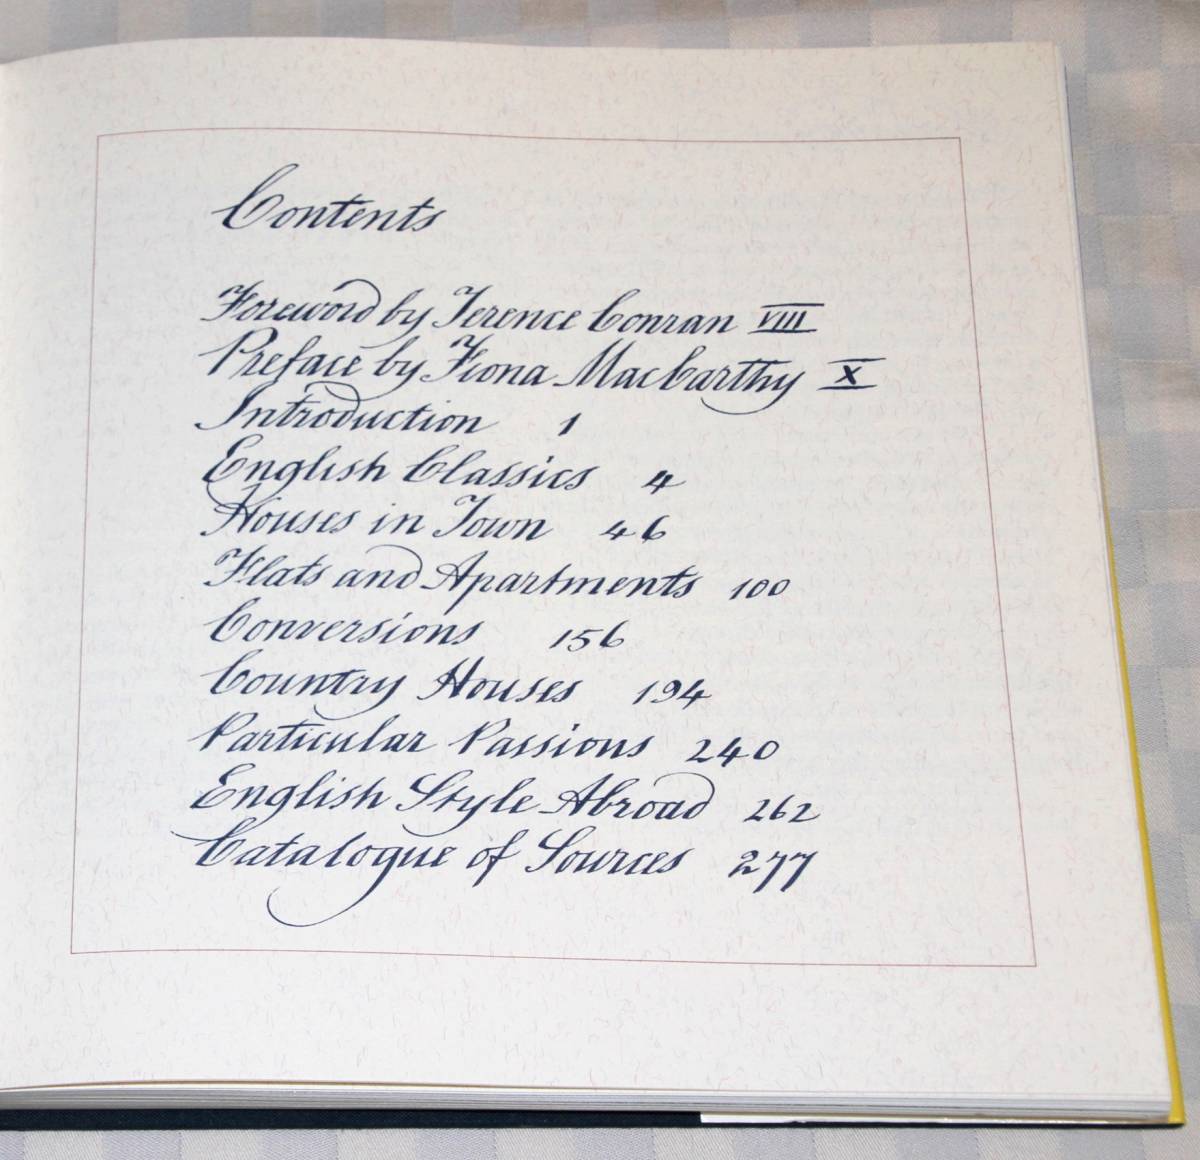 Contents
Foreword by Terence Conran VIII
Preface by Fiona MacCarthy X
Introduction 1
English Classics 4
Houses in Town 46
Flats and Apartments 100
Conversions 156
Country Houses 194
Particular Passions 240
English Style Abroad 262
Catalogue of Sources 277